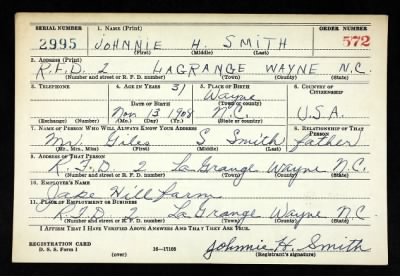 SERIAL NUMBER 1. NAME (Print) ORDER NUMBER
2995 JOHNNIE H. SMITH 572
(First) (Middle) (Last)
2. ADDRESS (Print)
R.F.D. 2 LAGRANGE WAYNE N.C.
(Number and street or R. F. D. number) (Town) (County) (State)
3. TELEPHONE 4. AGE IN YEARS 5. PLACE OF BIRTH 6. COUNTRY OF CITIZENSHIP
31 Wayne
(Town or county)
DATE OF BIRTH
Nov 13 1908 N.C. U.S.A.
(Exchange) (Number) (Mo.) (Day) (Yr.) (State or country)
7. NAME OF PERSON WHO WILL ALWAYS KNOW YOUR ADDRESS 8. RELATIONSHIP OF THAT PERSON
Mr. Giles S Smith father
(Mr., Mrs., Miss) (First) (Middle) (Last)
9. ADDRESS OF THAT PERSON
R.F.D. 2 LaGrange Wayne N.C.
(Number and street or R. F. D. number) (Town) (County) (State)
10. EMPLOYER'S NAME
Jake Hill farm
11. PLACE OF EMPLOYMENT OR BUSINESS
R.F.D. 2 LaGrange Wayne N.C.
(Number and street or R. F. D. number) (Town) (County) (State)
I AFFIRM THAT I HAVE VERIFIED ABOVE ANSWERS AND THAT THEY ARE TRUE.
REGISTRATION CARD
D. S. S. Form 1 16-17105 Johnnie H. Smith
(over) (Registrant's signature)